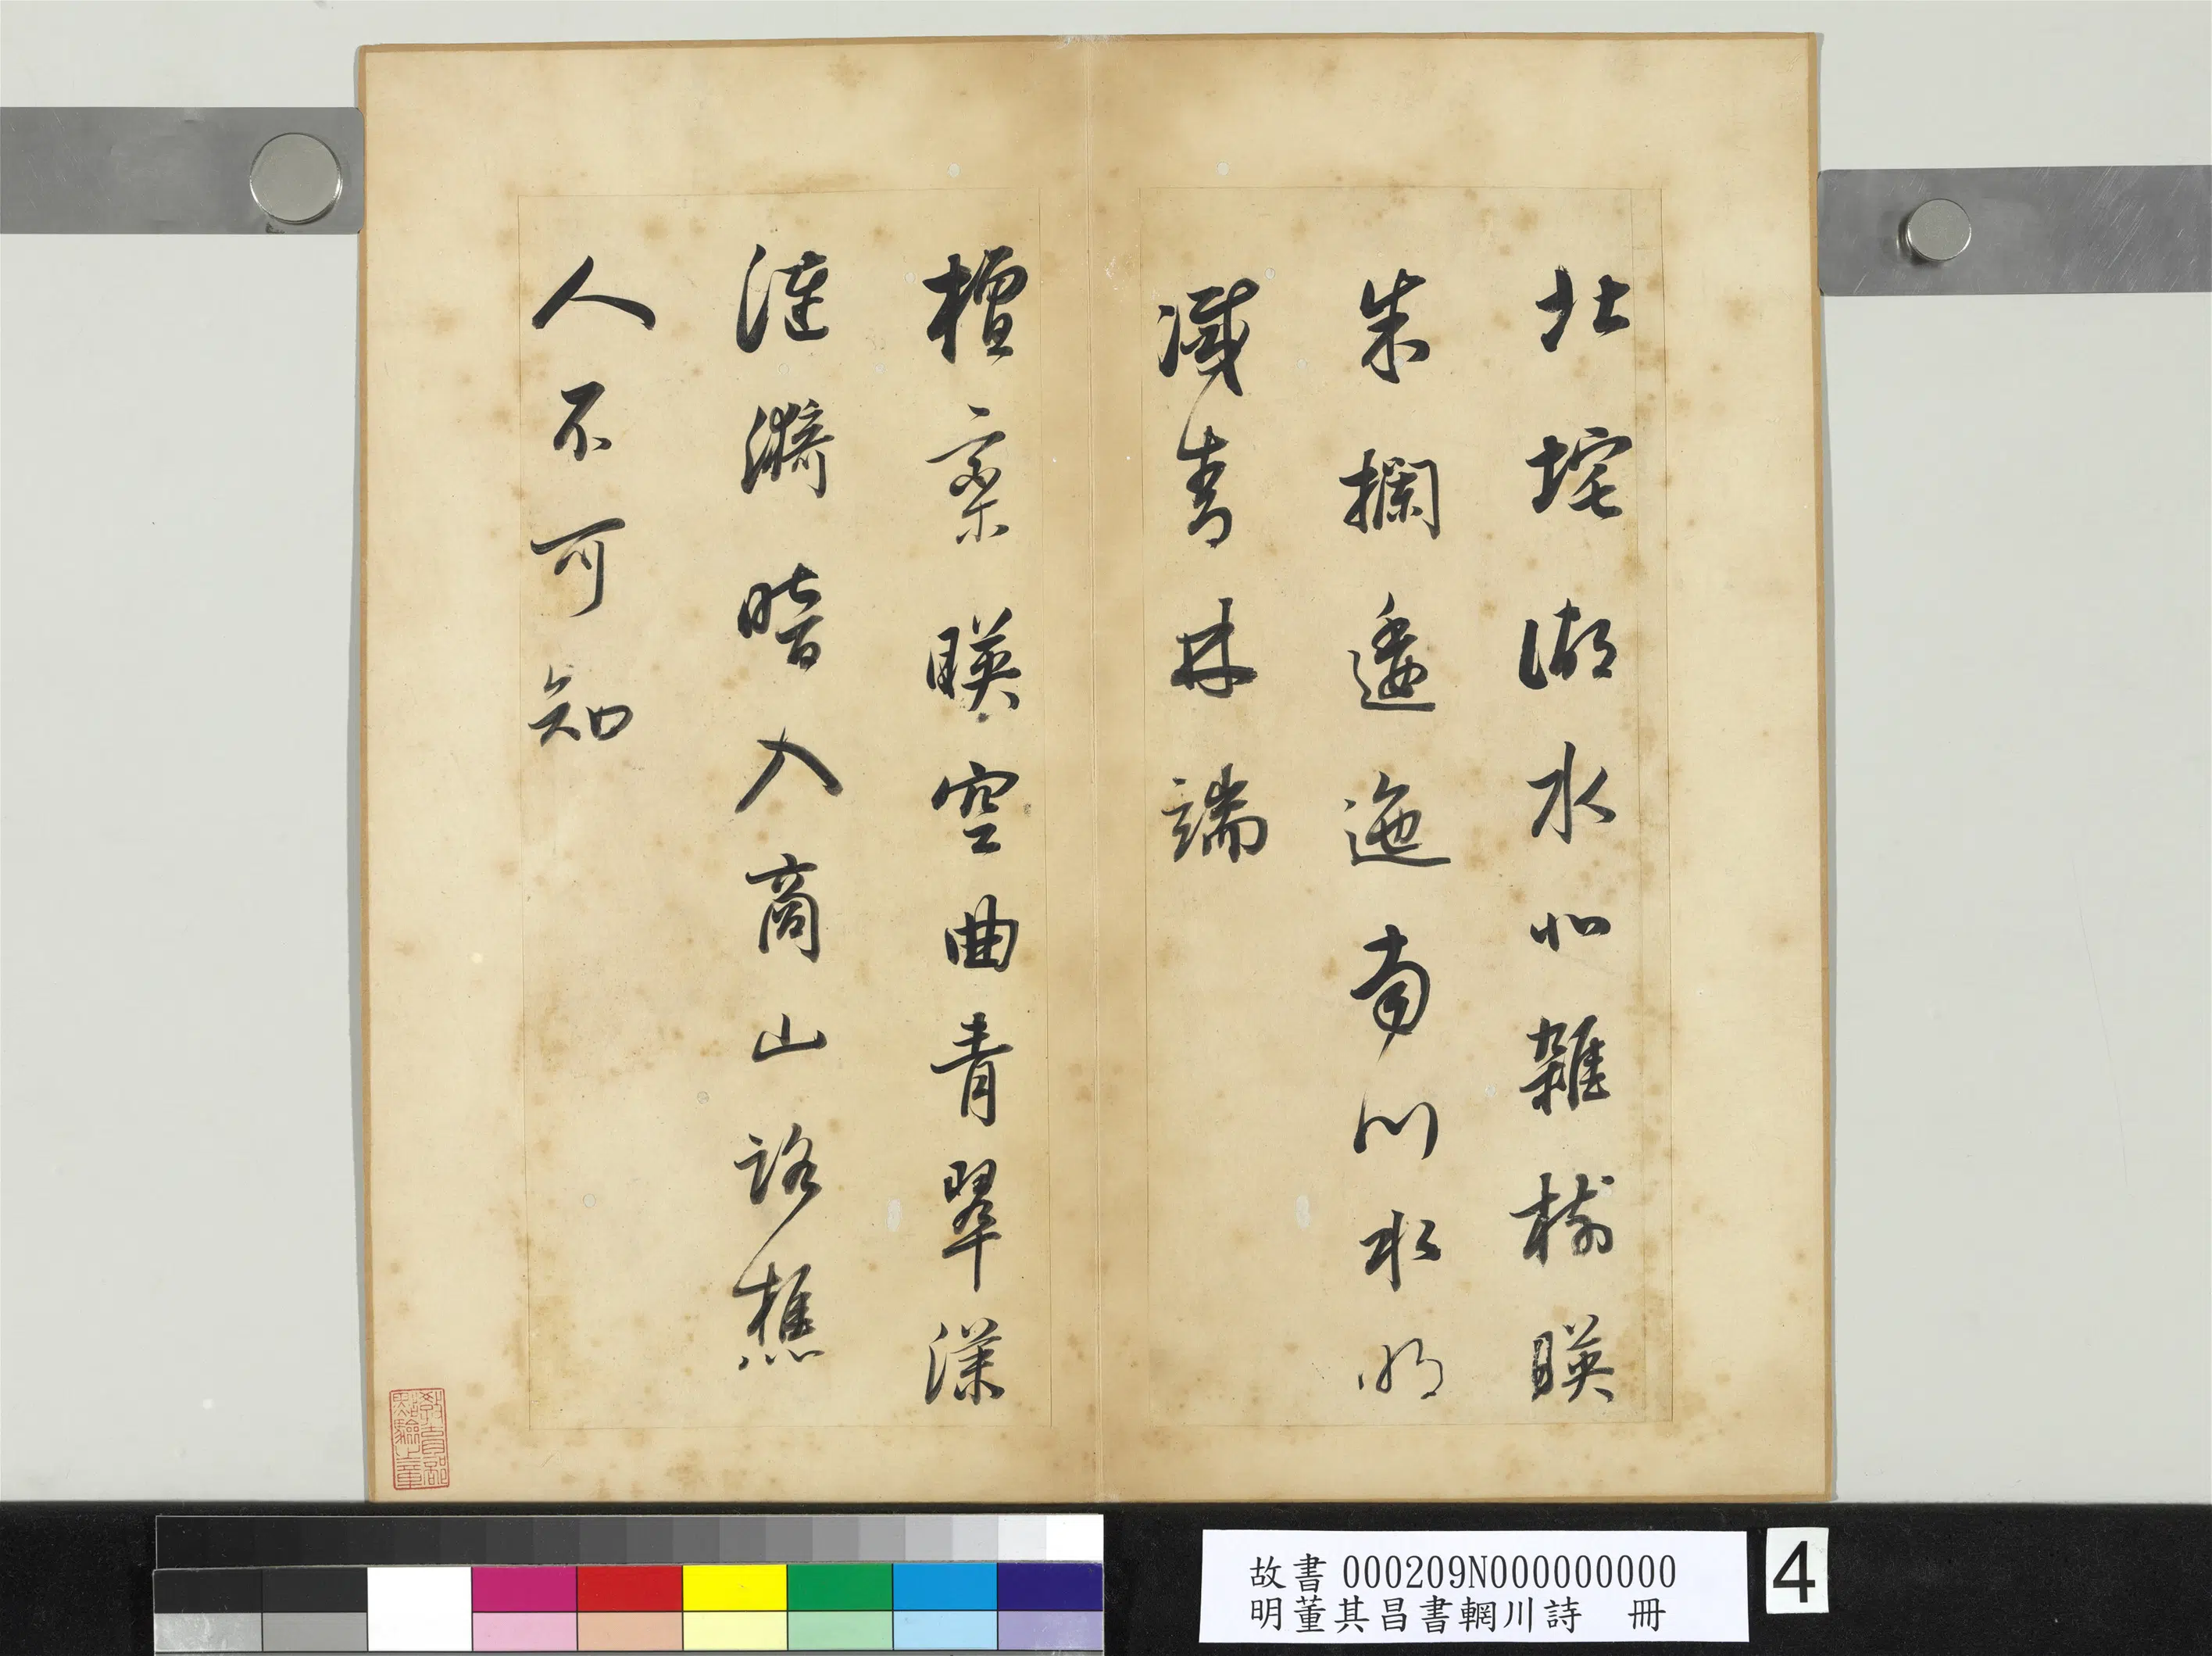 北垞湖水北雜樹暎
朱欄逶迤南川水明
滅青林端
檀欒暎空曲青翠漾
漣漪暗入商山路樵
人不可知
教育部
點驗之章
故書000209N000000000
明董其昌書輞川詩 冊
4